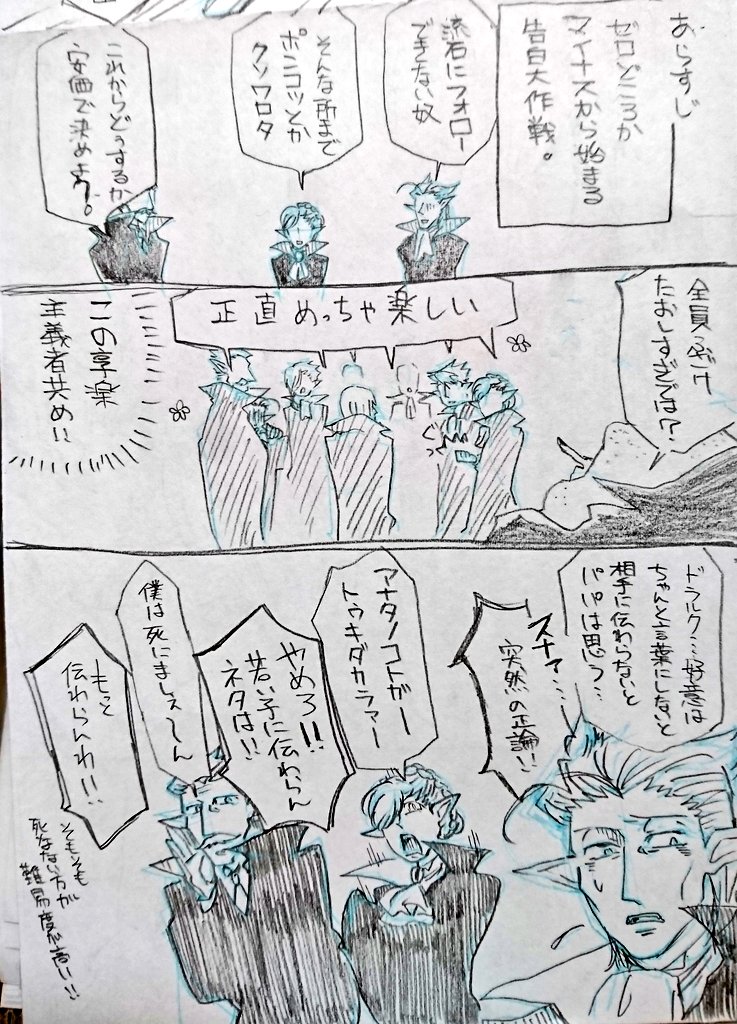 あらすじ
ゼロどころか
マイナスから始まる
告白大作戦。
流石にフォロー
できない奴
そんな所まで
ポンコツとか
クソワロタ
これからどうするか
安価で決めよう。
全員ふざけ
たおしすぎでは?
正直めっちゃ楽しい
ぐっ
この享楽
主義者共め!!
ドラルク…好意は
ちゃんと言葉にしないと
相手に伝わらないと
パパは思う…
スナァ…
突然の正論!!
アナタノコトガー
トゥキダカラァー
やめろ!!
若い子に伝わらん
ネタは!!
僕は死にましぇ〜ん
もっと
伝わらんわ!!
そもそも
死なない方が
難易度が高い!!